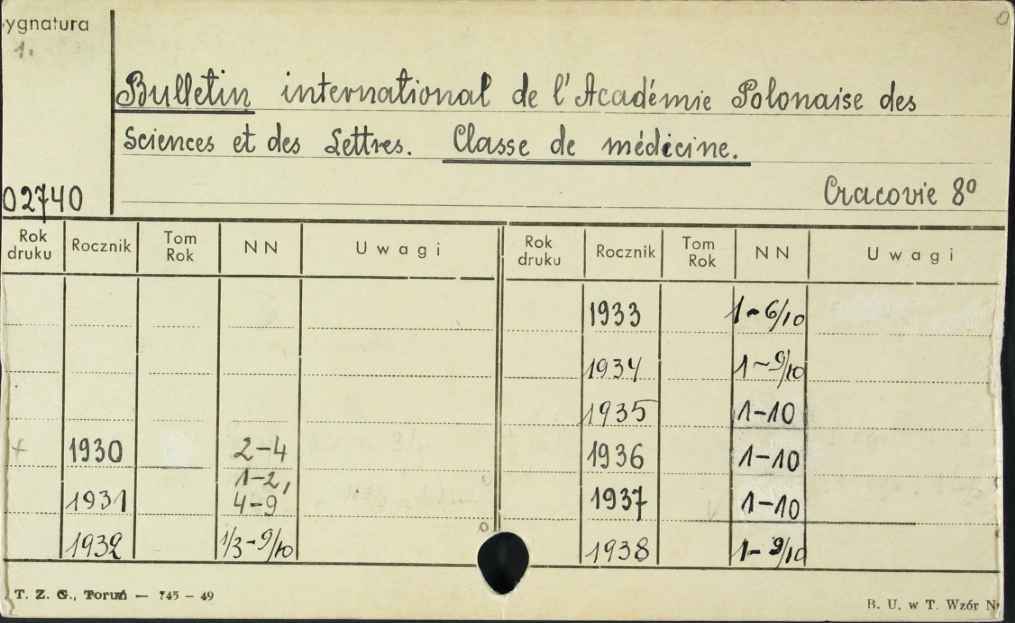 ygnatura
1.
Bulletin international de l'Académie Polonaise des
Sciences et des Lettres. Classe de médicine.
02740
Cracovie 8º
Rok druku Rocznik Tom Rok NN Uwagi Rok druku Rocznik Tom Rok NN Uwagi
1933 1-6/10
1934 1-9/10
1935 1-10
+ 1930 2-4 1936 1-10
1931 1-2, 4-9 1937 1-10
1932 1/3-9/10 1938 1-9/10
T. Z. G., Toruń — 745 - 49
B. U. w T. Wzór N